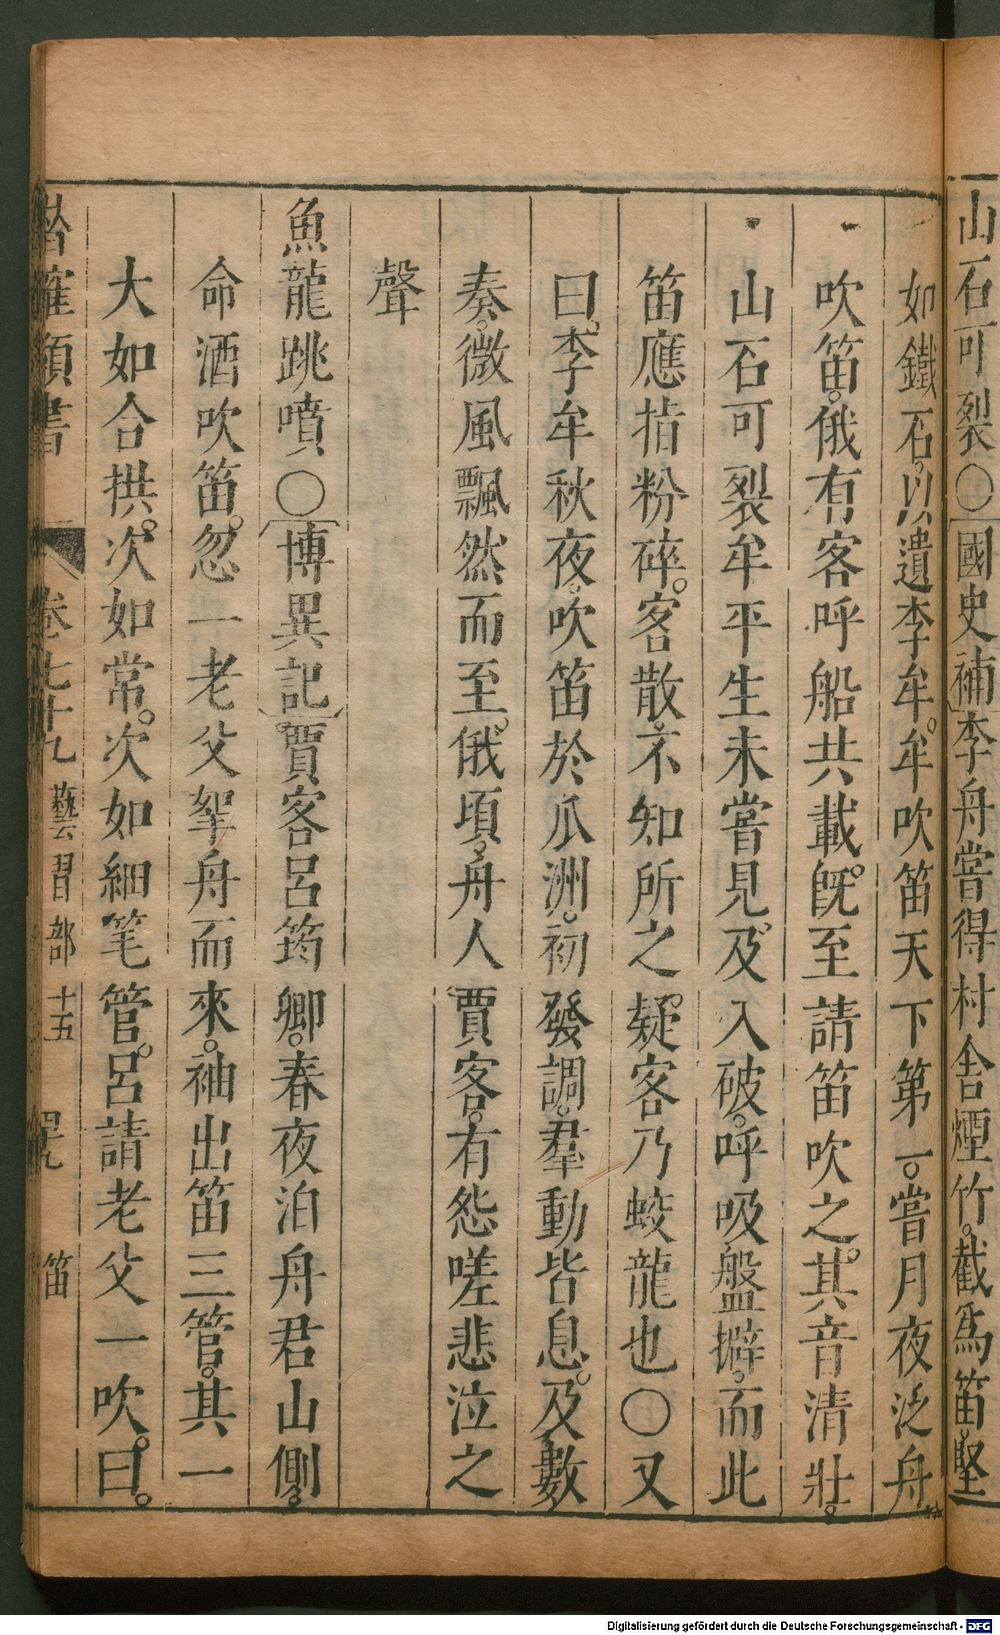 山石可裂〇國史補李舟嘗得村舍煙竹。截爲笛。堅
如鐵石。以遺李牟。牟吹笛天下第一。嘗月夜泛舟
吹笛。俄有客呼船共載。既至請笛吹之。其音清壯。
山石可裂牟平生未嘗見。及入破。呼吸盤擗。而此
笛應指粉碎。客散。不知所之疑客乃蛟龍也〇又
曰。李牟秋夜。吹笛於瓜洲。初發調。羣動皆息。及數
奏。微風飄然而至。俄頃。舟人賈客。有怨嗟悲泣之
聲
魚龍跳噴〇博異記。賈客呂筠卿。春夜泊舟君山側。
命酒吹笛。忽一老父拏舟而來。袖出笛三管。其一
大如合拱。次如常。次如細笔管。呂請老父一吹。曰。
卷七十九 藝習部 十五 笛
Digitalisierung gefördert durch die Deutsche Forschungsgemeinschaft - DFG